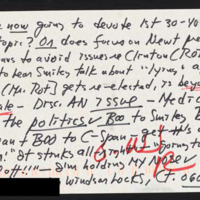 now going to devote 1st 30-40
topic? On does focus on Newt pre
ns to avoid issues re Clinton (Rot
to hear Smiley talk about "lying," a
(Mr. Rot] gets re-elected, is beyo
ale - Disc. AN issue - Medic
the politics. BOO to Smiley B
ant BOO to C-Span - get
in!" It stinks all right
ott!!" - I'm holding MY NOSE
Windsor Locks, CT. 060